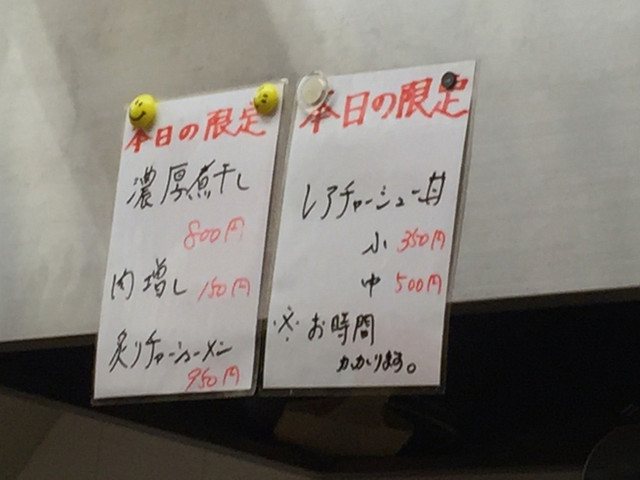 本日の限定
濃厚煮干し
800円
肉増し 150円
炙りチャーシューメン
950円
本日の限定
レアチャーシュー丼
小 350円
中 500円
※お時間
かかります。